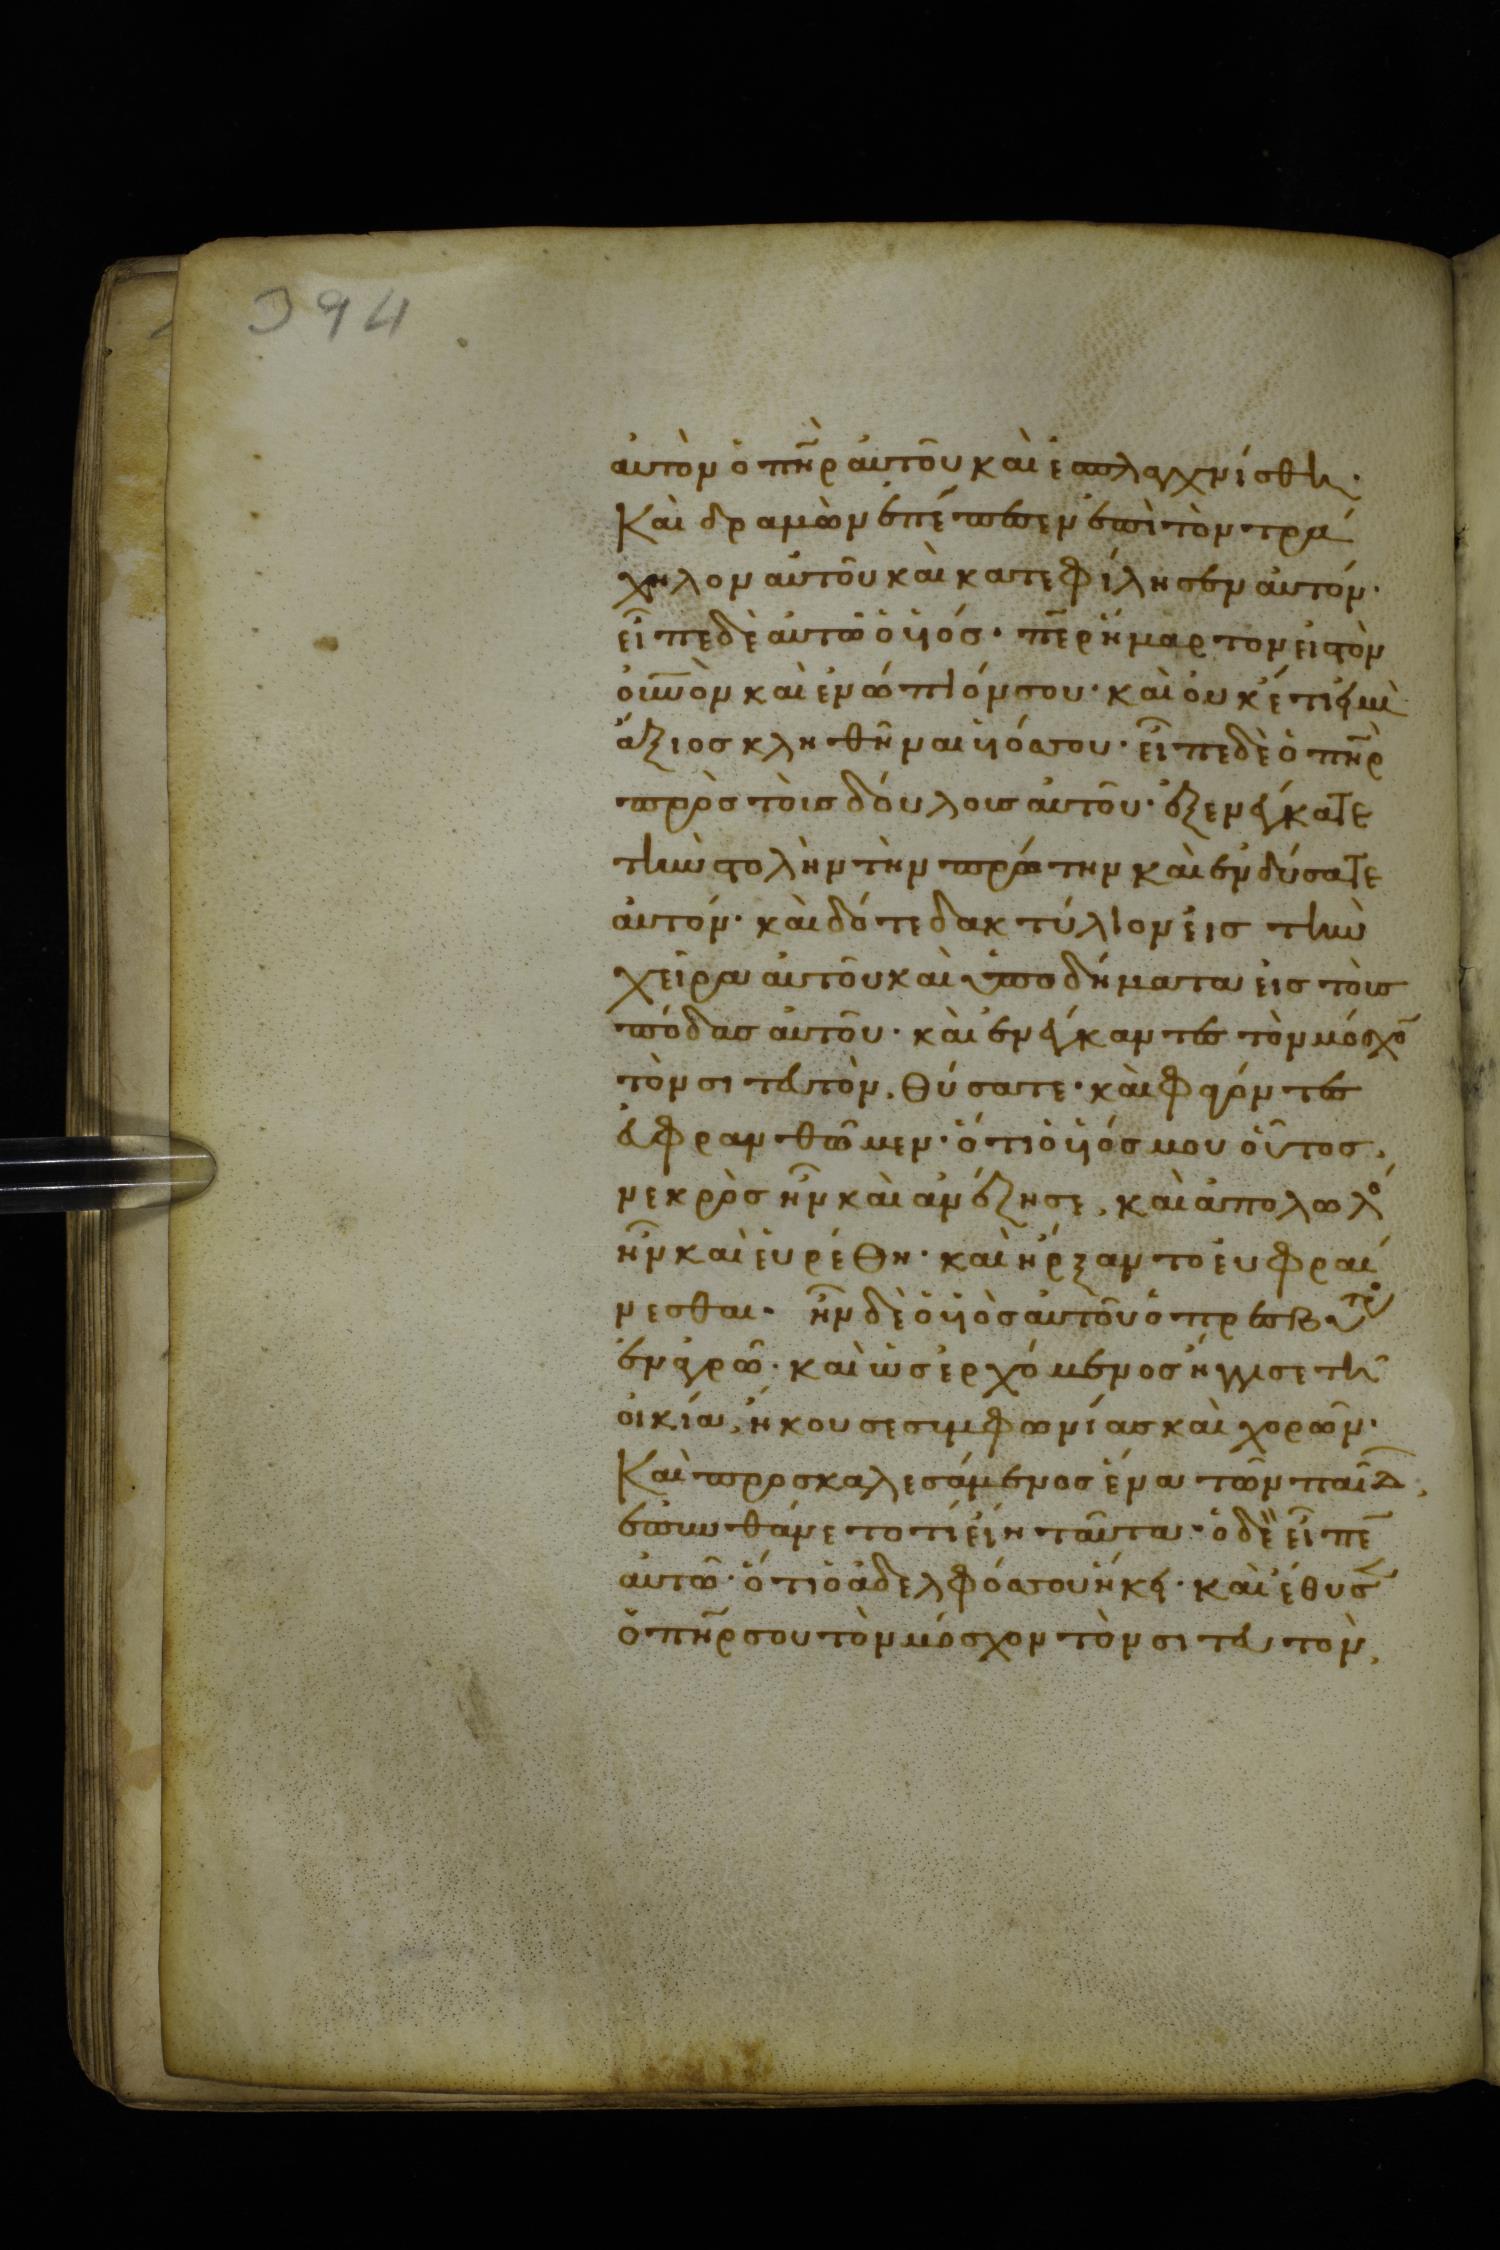 394
αὐτὸν ὁ πη̅ρ αὐτοῦ καὶ ἐσπλαχνίσθη·
Καὶ δραμὼν ἐπέπεσεν ἐπὶ τὸν τρά
χηλον αὐτοῦ καὶ κατεφίλησεν αὐτόν·
εἶπε δὲ αὐτῶ ὁ ϋἱός· πε̅ρ ἥμαρτον εἰς τὸν
οὐν̅ὸν καὶ ἐνώπιόν σου· καὶ οὐκέτι εἰμὶ
ἄξιος κληθῆναι ϋἱός σου· εἶπε δὲ ὁ πη̅ρ
πρὸς τοὺς δούλους αὐτοῦ· ἐξενέγκατε
τὴν στολὴν τὴν πρώτην καὶ ἐνδύσατε
αὐτόν· καὶ δότε δακτύλιον εἰς τὴν
χεῖρα αὐτοῦ καὶ ὑποδήματα εἰς τοὺς
πόδας αὐτοῦ· καὶ ἐνέγκαντες τὸν μόσχο̅
τὸν σιτευτὸν, θύσατε· καὶ φαγόντες
εὐφρανθῶμεν· ὅτι ὁ ϋἱός μου οὗτος,
νεκρὸς ἦν καὶ ἀνέζησε, καὶ ἀπολωλὸ
ἦν καὶ εὑρέθη· καὶ ἤρξαντο εὐφραί
νεσθαι· ἦν δὲ ὁ ϋἱὸς αὐτοῦ ὁ πρεσβύτερο
ἐν ἀγρῶ· καὶ ὡς ἐρχόμενος ἤγγισε τῆ
οἰκία, ἤκουσε συμφωνίας καὶ χορῶν·
Καὶ προσκαλεσάμενος ἕνα τῶν παίδ,
ἐπυνθάνετο τί εἴη ταῦτα· ὁ δὲ εἶπε̅
αὐτῶ· ὅτι ὁ ἀδελφός σου ἥκει· καὶ ἔθυσε
ὁ πη̅ρ σου τὸν μόσχον τὸν σιτευτὸν,